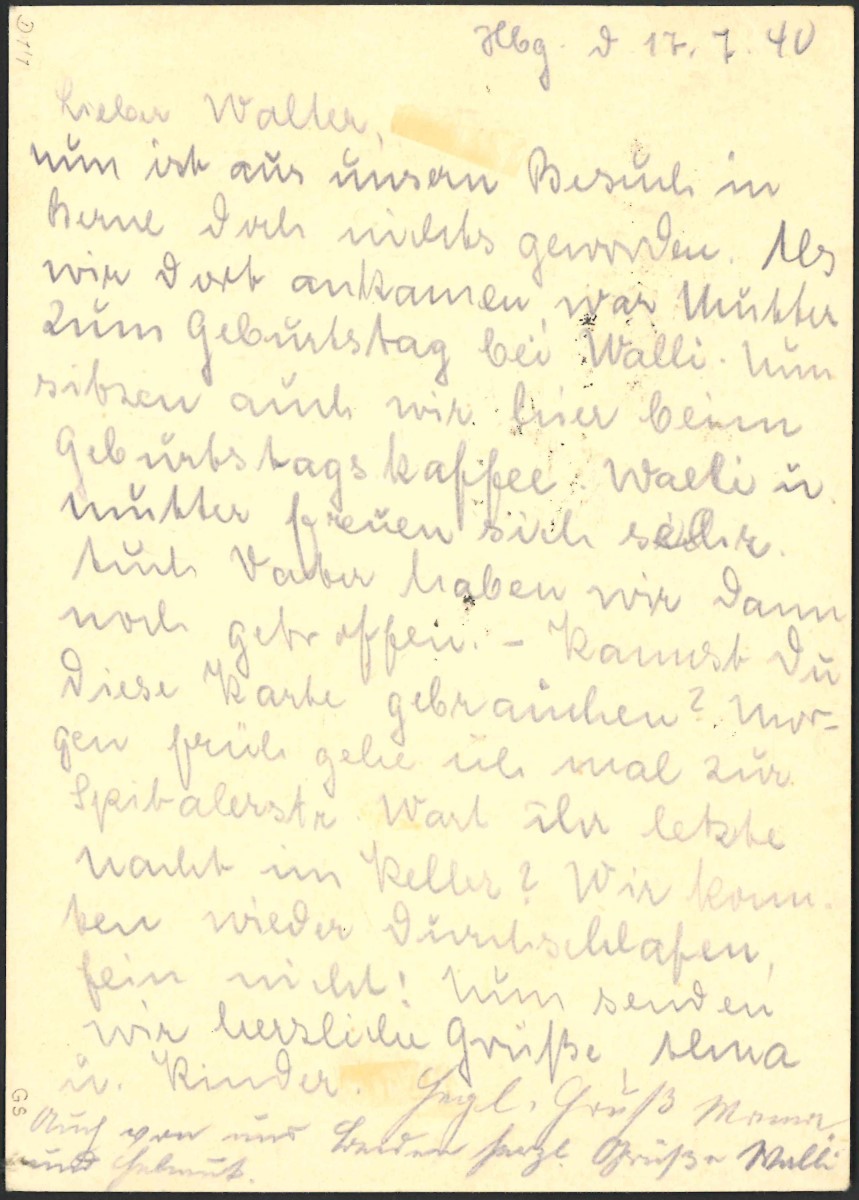 D 1'1
Hbg. d 17. 7. 40
Lieber Walter,
nun ist aus unsern Besuch in
Berne doch nichts geworden. Als
wir dort ankamen, war Mutter
zum Geburtstag bei Walli. Nun
sitzen auch wir hier beim
Geburtstagskaffee. Walli u.
Mutter freuen sich sehr.
Auch Vater haben wir dann
noch getroffen. – Kannst Du
diese Karte gebrauchen? Mor-
gen früh gehe ich mal zur
Spitalerstr. Wart ihr letzte
Nacht im Keller? Wir konn-
ten wieder durchschlafen,
fein nicht! Nun senden
wir herzliche Grüße, Alma
u. Kinder. Hzgl. Gruß Mama
Auch von uns beiden herzl. Grüße Walli
und Helmut.
GS